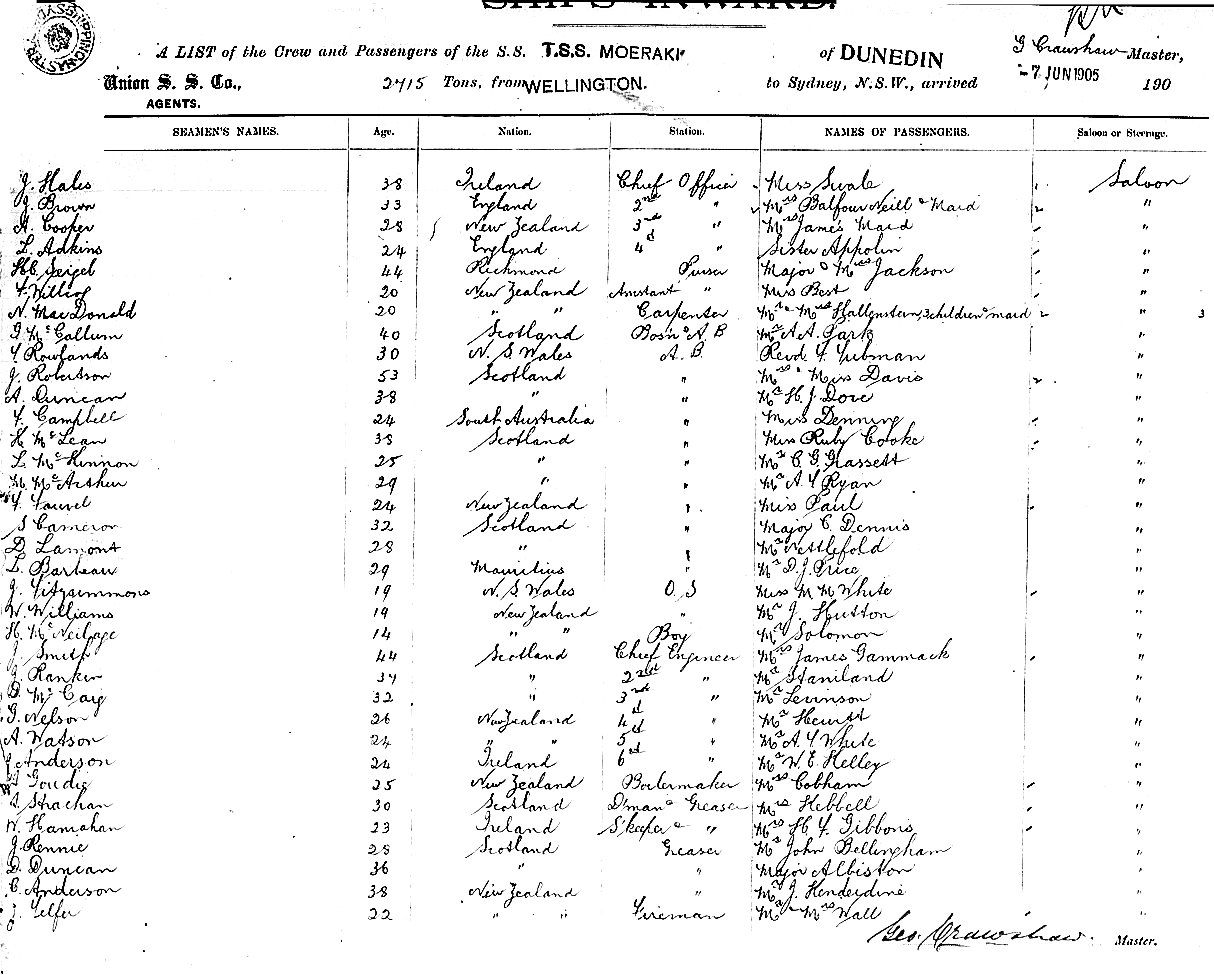 SHIPS INWARD.
SHIPPING MASTER
A LIST of the Crew and Passengers of the S.S. T.S.S. MOERAKI of DUNEDIN G Crawshaw Master,
Union S. S. Co., 2715 Tons, from WELLINGTON. to Sydney, N.S.W., arrived -7 JUN 1905 190
AGENTS.
SEAMEN'S NAMES. Age. Nation. Station. NAMES OF PASSENGERS. Saloon or Steerage.
J. Hales 38 Ireland Chief Officer Miss Swale 1 Saloon
J. Brown 33 England 2nd " Mrs Balfour Neill & Maid 2 "
A. Cooper 28 New Zealand 3rd " Mrs James Maid "
L. Adkins 24 England 4d " Sister Appolin "
H.C. Seigel 44 Richmond Purser Major & Mrs Jackson "
20 New Zealand Assistant " Miss Best "
N. MacDonald 20 " " Carpenter Mr & Mrs Hallenstein, 3 children & maid 2 " 3
D. McCallum 40 Scotland Bosn & A B Mr A A Park "
F. Rowlands 30 N. S Wales A. B. Revd F. Tubman "
J. Robertson 53 Scotland " Mrs & Miss Davis 2 "
A. Duncan 38 " " Mr H. J Dove "
F. Campbell 24 South Australia " Miss Denning "
H McLean 38 Scotland " Miss Ruby Cooke "
L. McKinnon 25 " " Mr C. G. Grassett "
M. McArthur 29 " " Mr A F Ryan "
F. Fauvel 24 New Zealand " Miss Paul "
S Cameron 32 Scotland " Major C. Dennis "
D. Lamont 28 " " Mr Nettlefold "
L. Barbeau 29 Mauritius " Mr D. J. Price "
J. Fitzsimmons 19 N. S Wales O. S Miss M M White "
W. Williams 19 New Zealand " Mr J. Hutton "
H. McNeilage 14 " " Boy Mr Solomon "
J. Smith 44 Scotland Chief Engineer Mrs James Gammack "
J. Rankin 34 " 2nd " Mr Staniland "
D. McCaig 32 " 3rd " Mr Levinson "
G. Nelson 26 New Zealand 4d " Mr Hewitt "
A. Watson 24 " " 5d " Mr A F White "
J. Anderson 24 Ireland 6d " Mr W. E. Kelley "
Goudie 25 New Zealand Boilermaker Mrs Cobham "
A. Strachan 30 Scotland D'man & Greaser Mrs Hebbell "
W. Hanrahan 23 Ireland S'keeper & " Mrs H. F. Gibbons "
J. Rennie 28 Scotland Greaser Mr John Bellingham "
D. Duncan 36 " " Major Albiston "
C. Anderson 38 New Zealand " Mr J. Henderdine "
J. Telfer 22 " " Fireman Mr & Mrs Wall "
Geo. Crawshaw. Master.